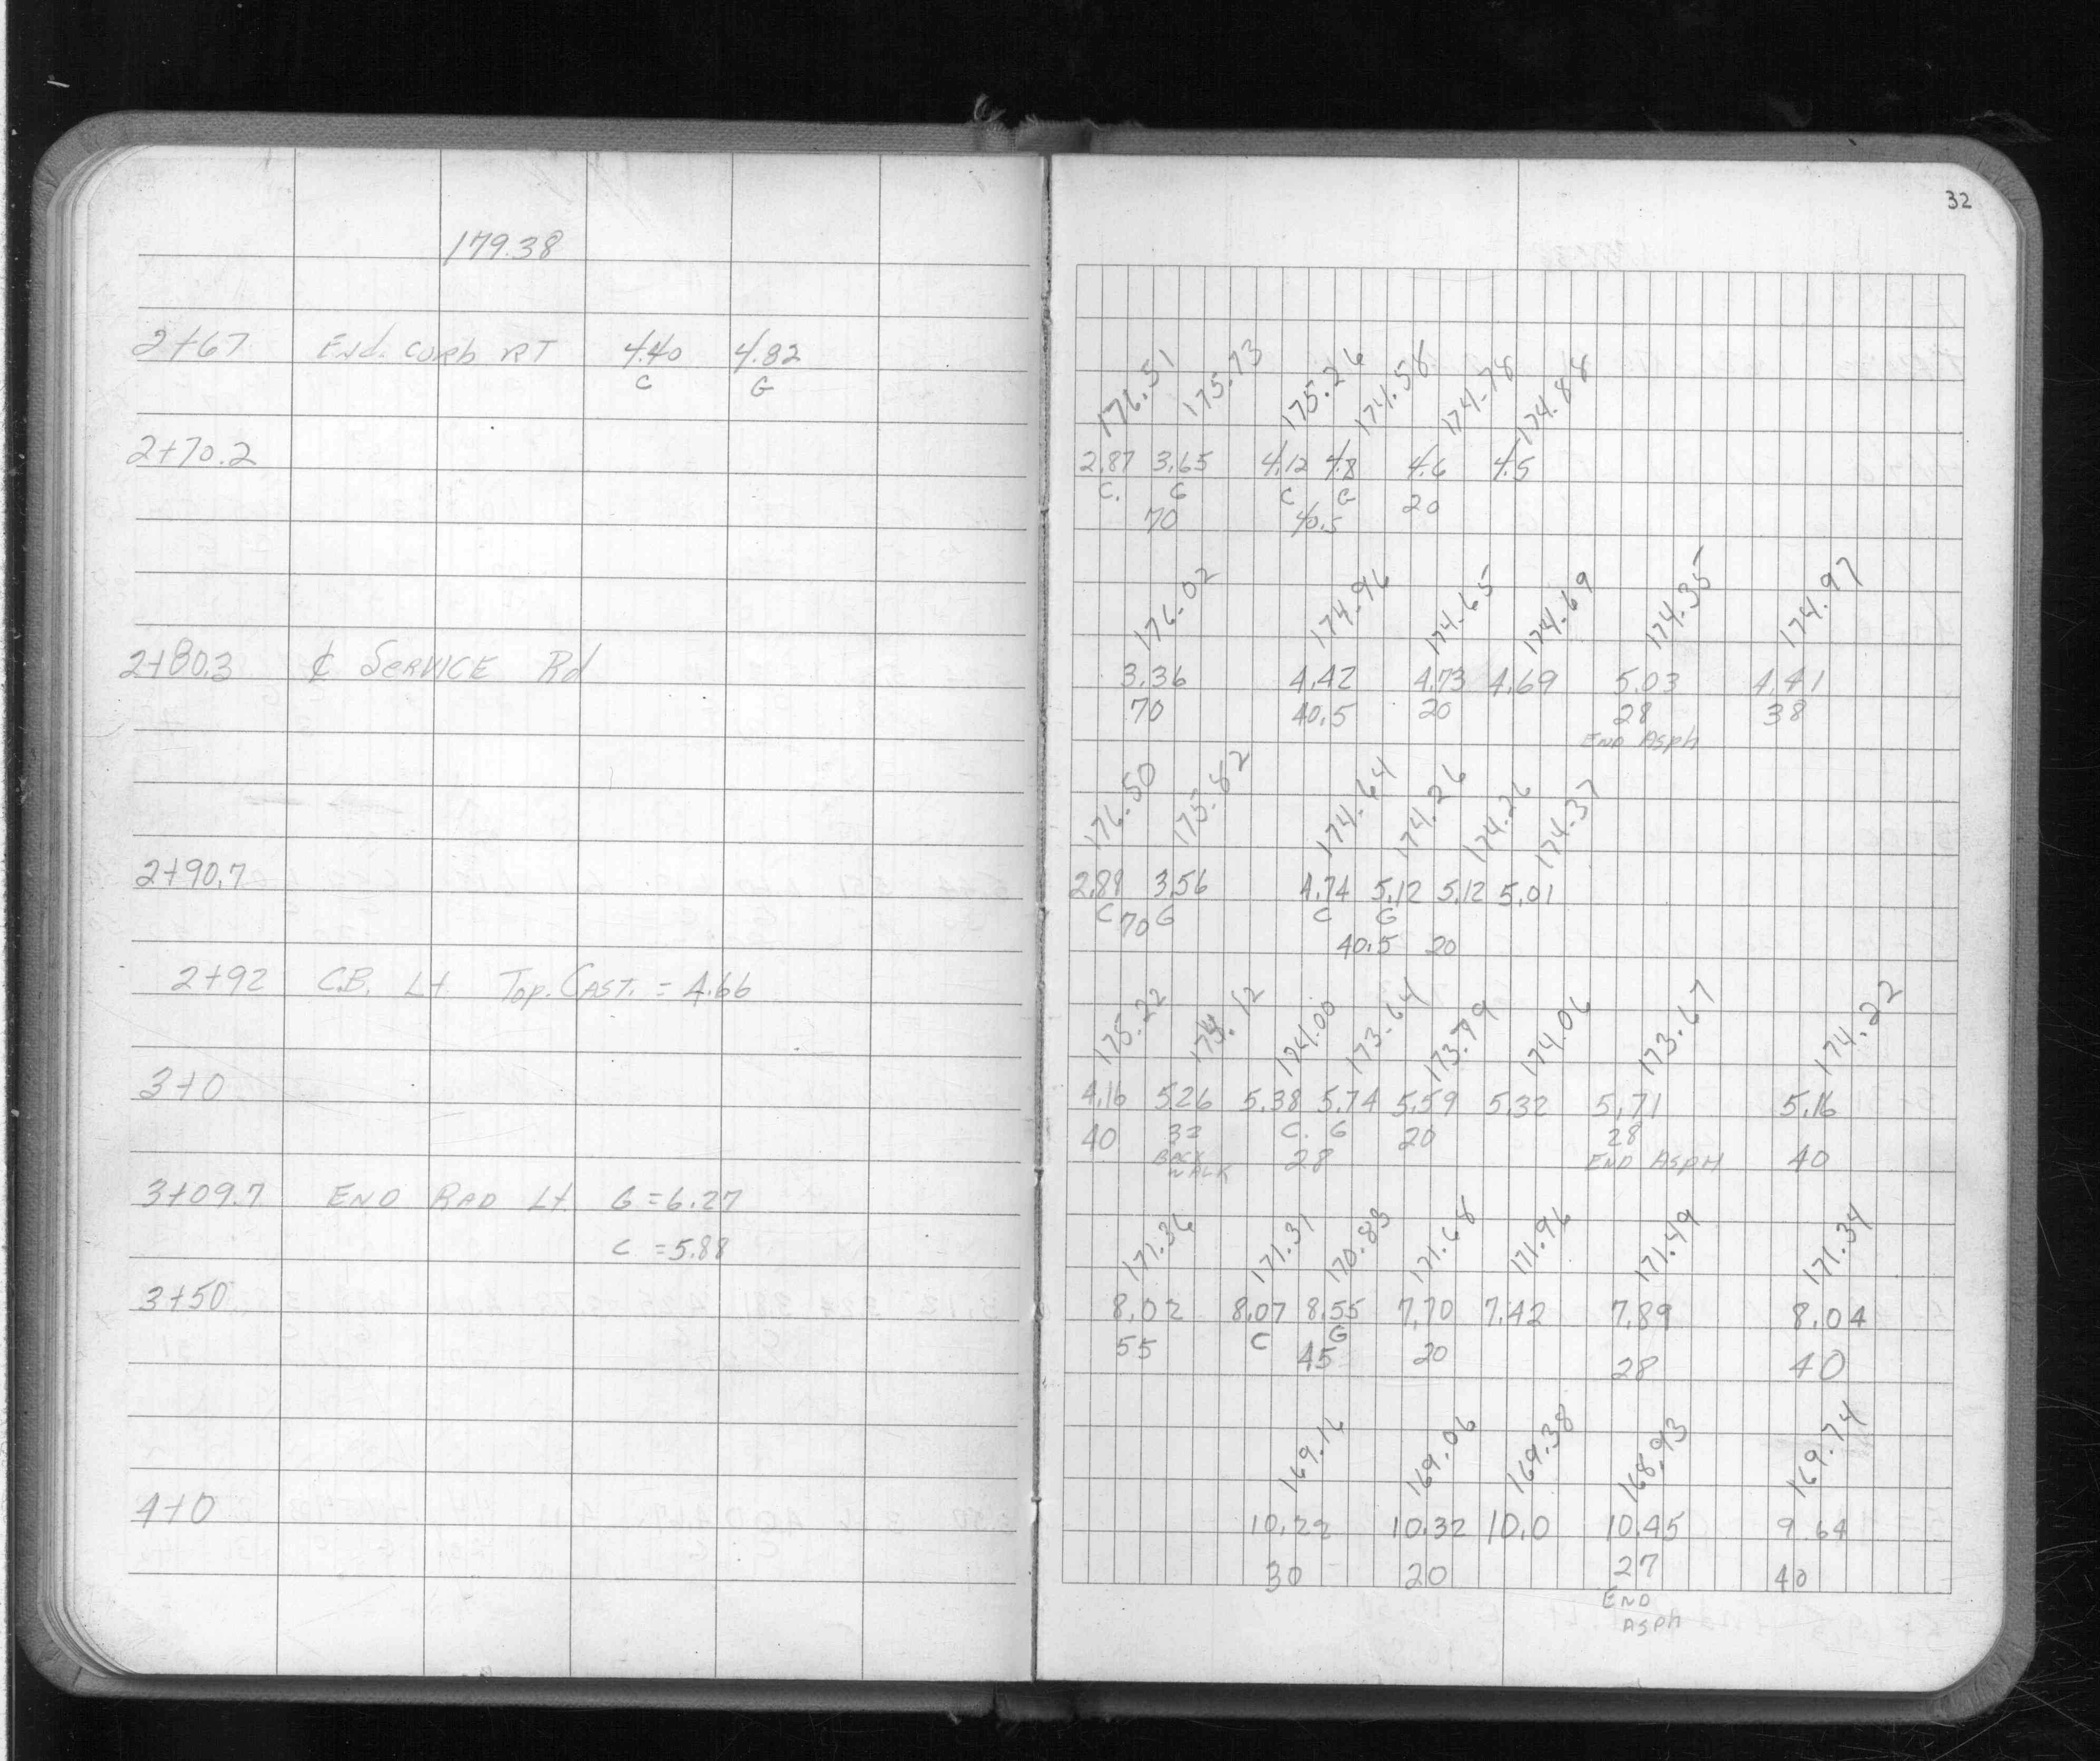 179.38
2+67 End. curb RT 4.40 4.82
C G
2+70.2
2+80.3 ₵ SERVICE Rd
2+90.7
2+92 C.B. Lt. Top. Cast. = 4.66
3+0
3+09.7 END RAD Lt. G = 6.27
C = 5.88
3+50
4+0
32
176.51 175.73 175.26 174.58 174.78 174.88
2.87 3.65 4.12 4.8 4.6 4.5
C. G C G 20
70 40.5
176.02 174.96 174.65 174.69 174.35 174.97
3.36 4.42 4.73 4.69 5.03 4.41
70 40.5 20 28 38
END Asph
176.50 175.82 174.64 174.26 174.26 174.37
2.89 3.56 4.74 5.12 5.12 5.01
C 70 G C G
40.5 20
175.22 174.12 174.00 173.64 173.79 174.06 173.67 174.22
4.16 5.26 5.38 5.74 5.59 5.32 5.71 5.16
40 32 C. G 20 28
BACK WALK 28 END ASPH 40
171.36 171.31 170.83 171.68 171.96 171.49 171.34
8.02 8.07 8.55 7.70 7.42 7.89 8.04
55 C G 20 28 40
45
169.16 169.06 169.38 168.93 169.74
10.22 10.32 10.0 10.45 9.64
30 20 27 40
END
ASPH